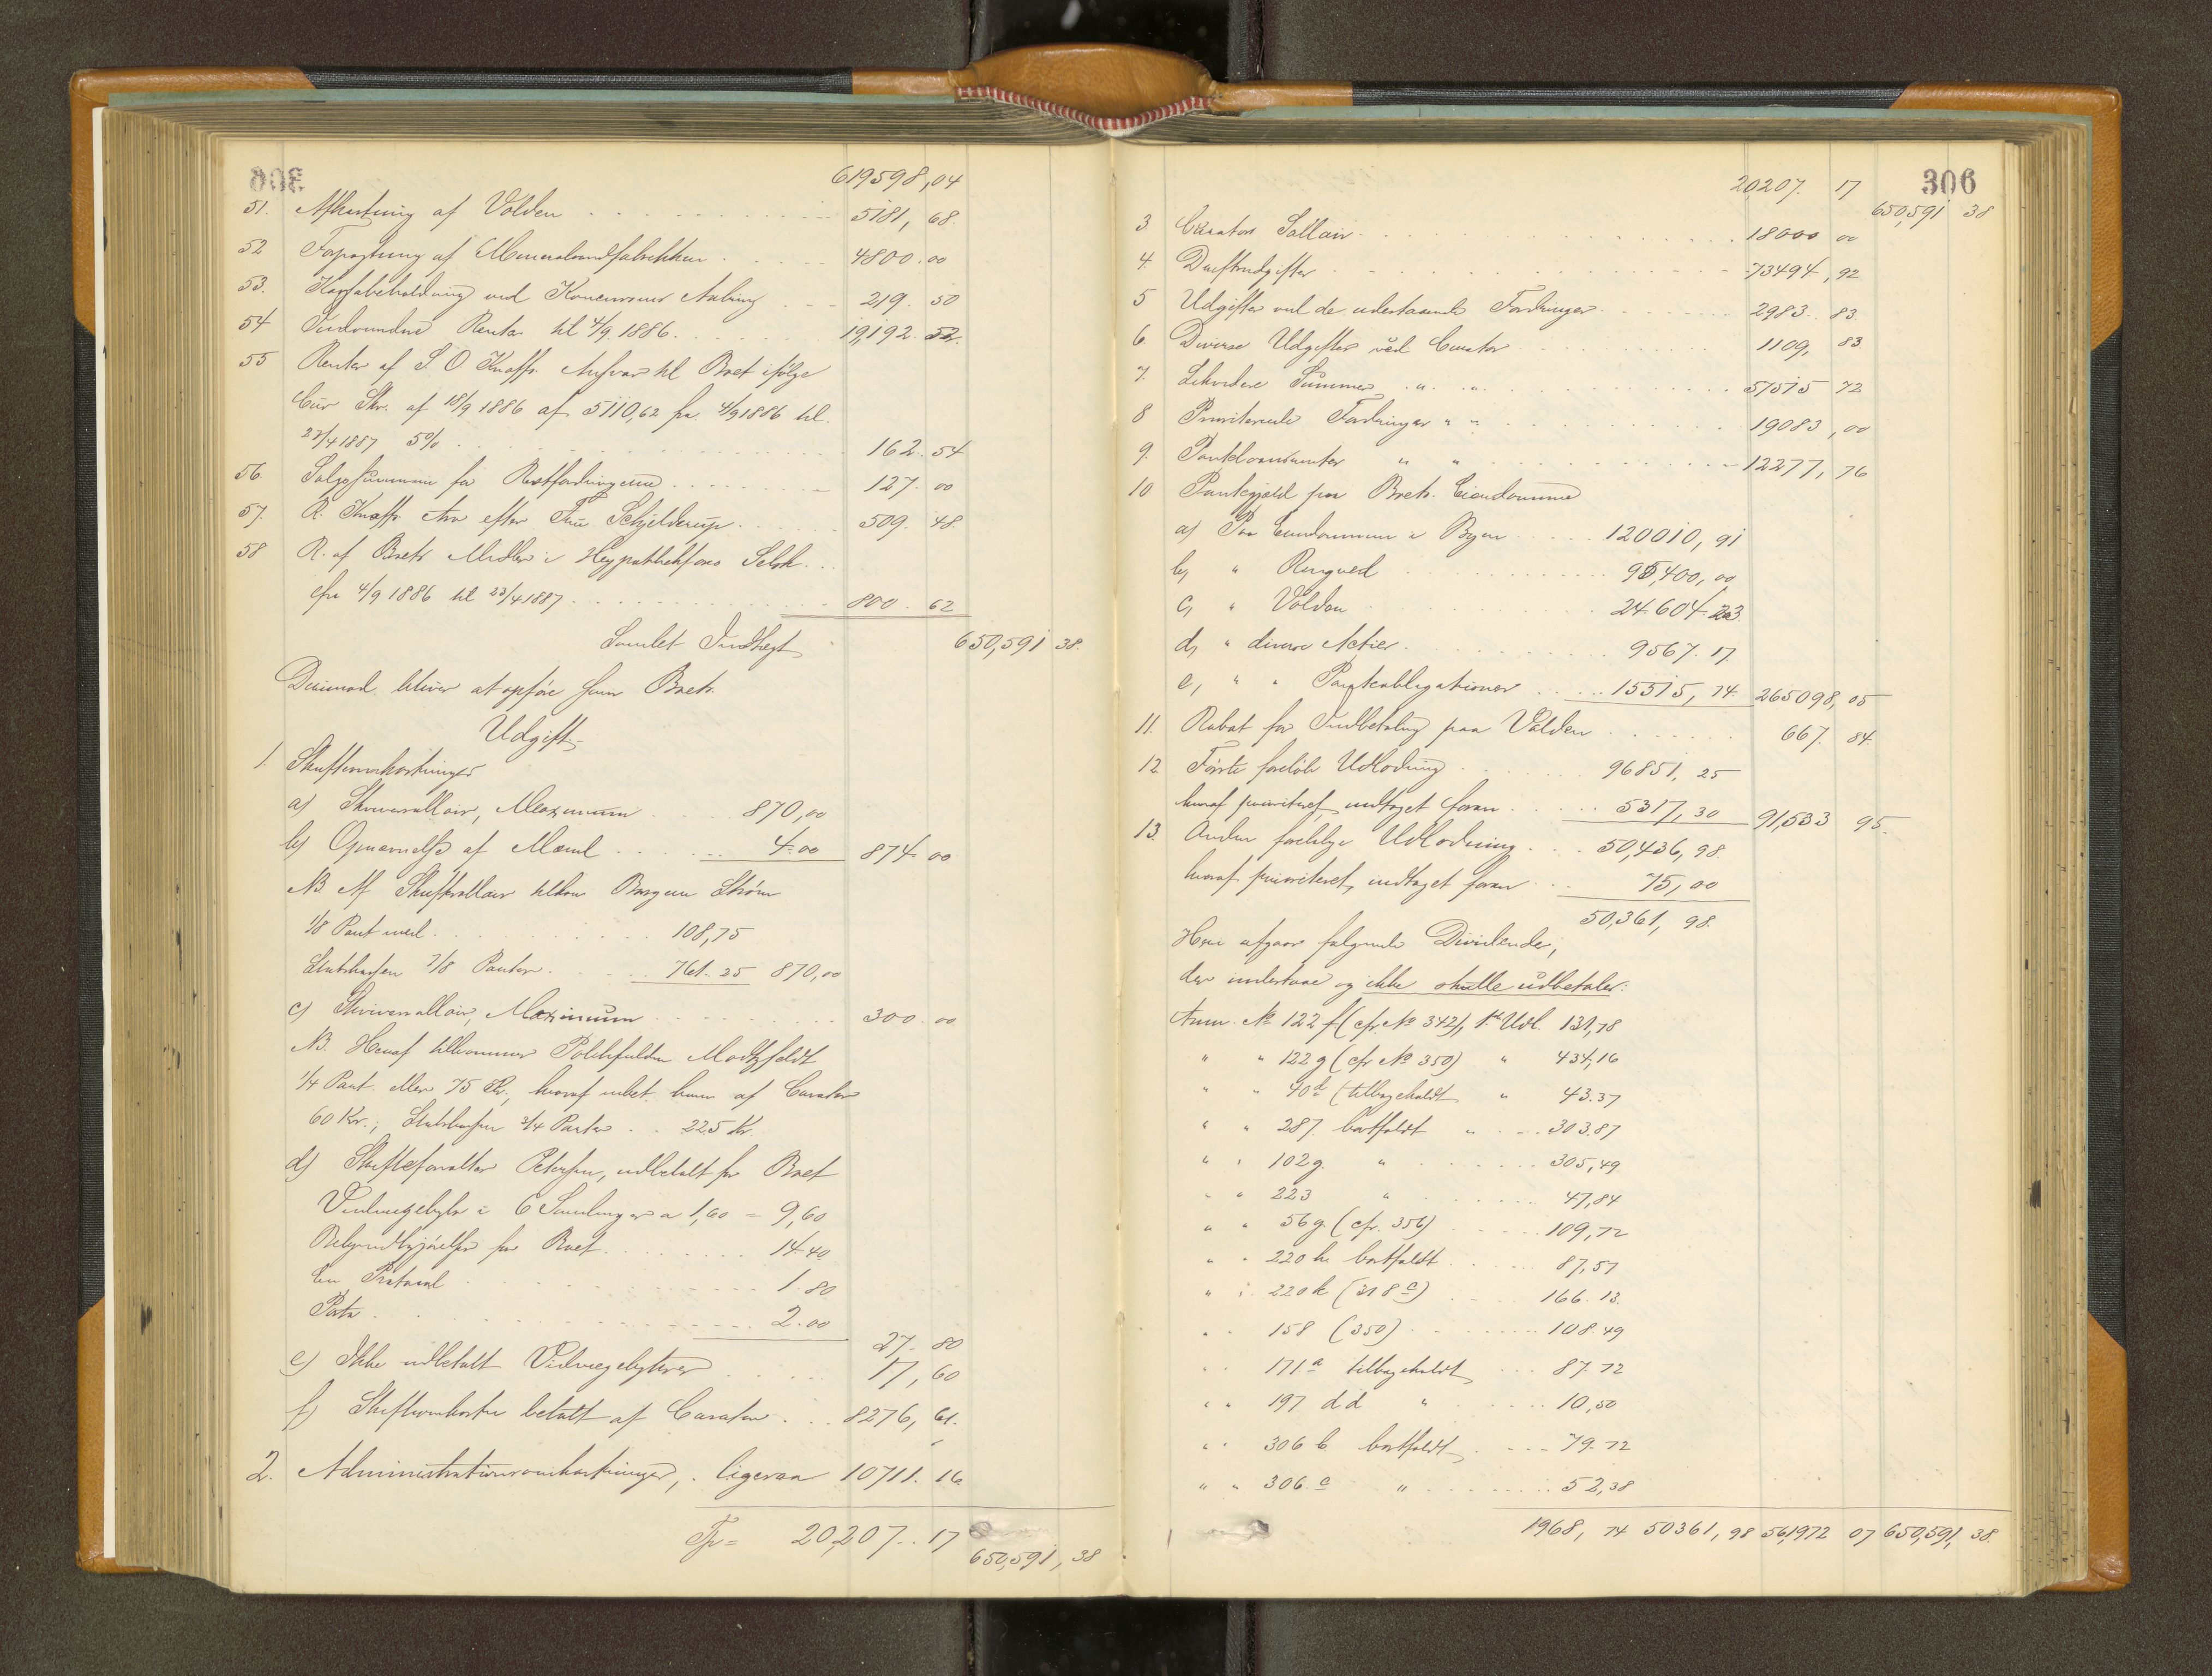 619598,04
51. Afkastning af Volden 5181, 68.
52 Forpagtning af Mineralvandfabrikken 4800.00
53. Kassabeholdning ved Konkursens Aabning 219. 50
54 Indvundne Renter til 4/9 1886. 19,192. 52.
55 Renter af S. O Knoffs Ansvar til Boet ifølge
Cur Skr. af 18/9 1886 af 5110,62 fra 4/9 1886 til
23/4 1887 5% 162.54
56. Salgssummen for Restfordringerne 127.00
57. R. Knoffs Arv efter Fru Schjelderup. 509. 48.
58 R. af Boets Midler i Hypothekfors Selsk.
fra 4/9 1886 til 23/4 1887. 800. 62
Samlet Indtægt 650,591 38.
Derimod bliver at opføre som Boets
Udgift
1. Skifteomkostninger
a) Skiftesallair, Maximum 870,00
b) Opnævnelse af Mænd 4.00 874.00
NB Af Skiftesallair tilkom Borgerm Strøm
1/8 Part med 108,75
Statskassen 7/8 Parter 761.25 870,00
c) Skriversallair, Maximum 300.00
NB. Heraf tilkommer Politifuldm Motzfeldt
1/4 Part eller 75 Kr., hvoraf udbet. ham af Curator
60 Kr.; Statskassen 3/4 Parter 225 Kr.
d) Skifteforvalter Petersen, udbetalt for Boet
i 6 Samlinger a 1,60 = 9,60
for Boet 14.40
En Protocol 1.80
Porto 2.00
27. 80
e) Ikke udbetalt 17,60
f) Skifteomkostn betalt af Curator 8276, 61.
2. Administrationsomkostninger, ligesaa 10711. 16
Tr = 20,207..17
650,591, 38
306
20,207. 17
650,591 38
3 Curators Sallair 18000 00
4. Driftsudgifter 73494,92
5 Udgifter ved de udestaaende Fordringer 2983. 83.
6. Diverse Udgifter ved Curator 1109, 83
7. Likvidere Summer " " 51515 72
8 Prioriterede Fordringer " " 19083,00
9. " " 12277, 76
10 Pantegjæld paa Boets Eiendomme
a) Paa Eiendommene i Byen 120010, 91
b, " Ringved 95,400,00
c, " Volden 24.604.23
d, " diverse Actier 9567.17
e, " " Panteobligationer 15515, 74. 265098,05
11. Rabat for Indbetaling paa Volden 667. 84.
12. Første foreløb Udlodning 96851, 25
hvoraf prioriteret, indtaget foran 5317,30 91,533 95.
13. Anden foreløbige Udlodning 50,436,98.
hvoraf prioriteret, indtaget foran 75,00
50,361, 98.
Heri afgaar følgende Dividender,
der indestaar og ikke skulle udbetales:
Anm. No 122 f (cfr. No 342), 1ste Udl. 131,78
" " 122 g (cfr No 350) " 434,16
" " 40d (tilbageholdt " 43.37
" " 287 bortfaldt " 303.87
" " 102 g. " 305,49
" " 223 " 47,84
" " 56 g. (cfr. 356) 109,72
" " 220 h bortfaldt 87,57
" " 220 k (318 c) 166.13.
" " 158 (350) 108.49
" " 171a tilbageholdt 87.72
" " 197 d d " 10,50
" " 306 b bortfaldt 79.72
" " 306. c " 52,38
1968, 74 50361, 98 561972 07 650,591, 38.